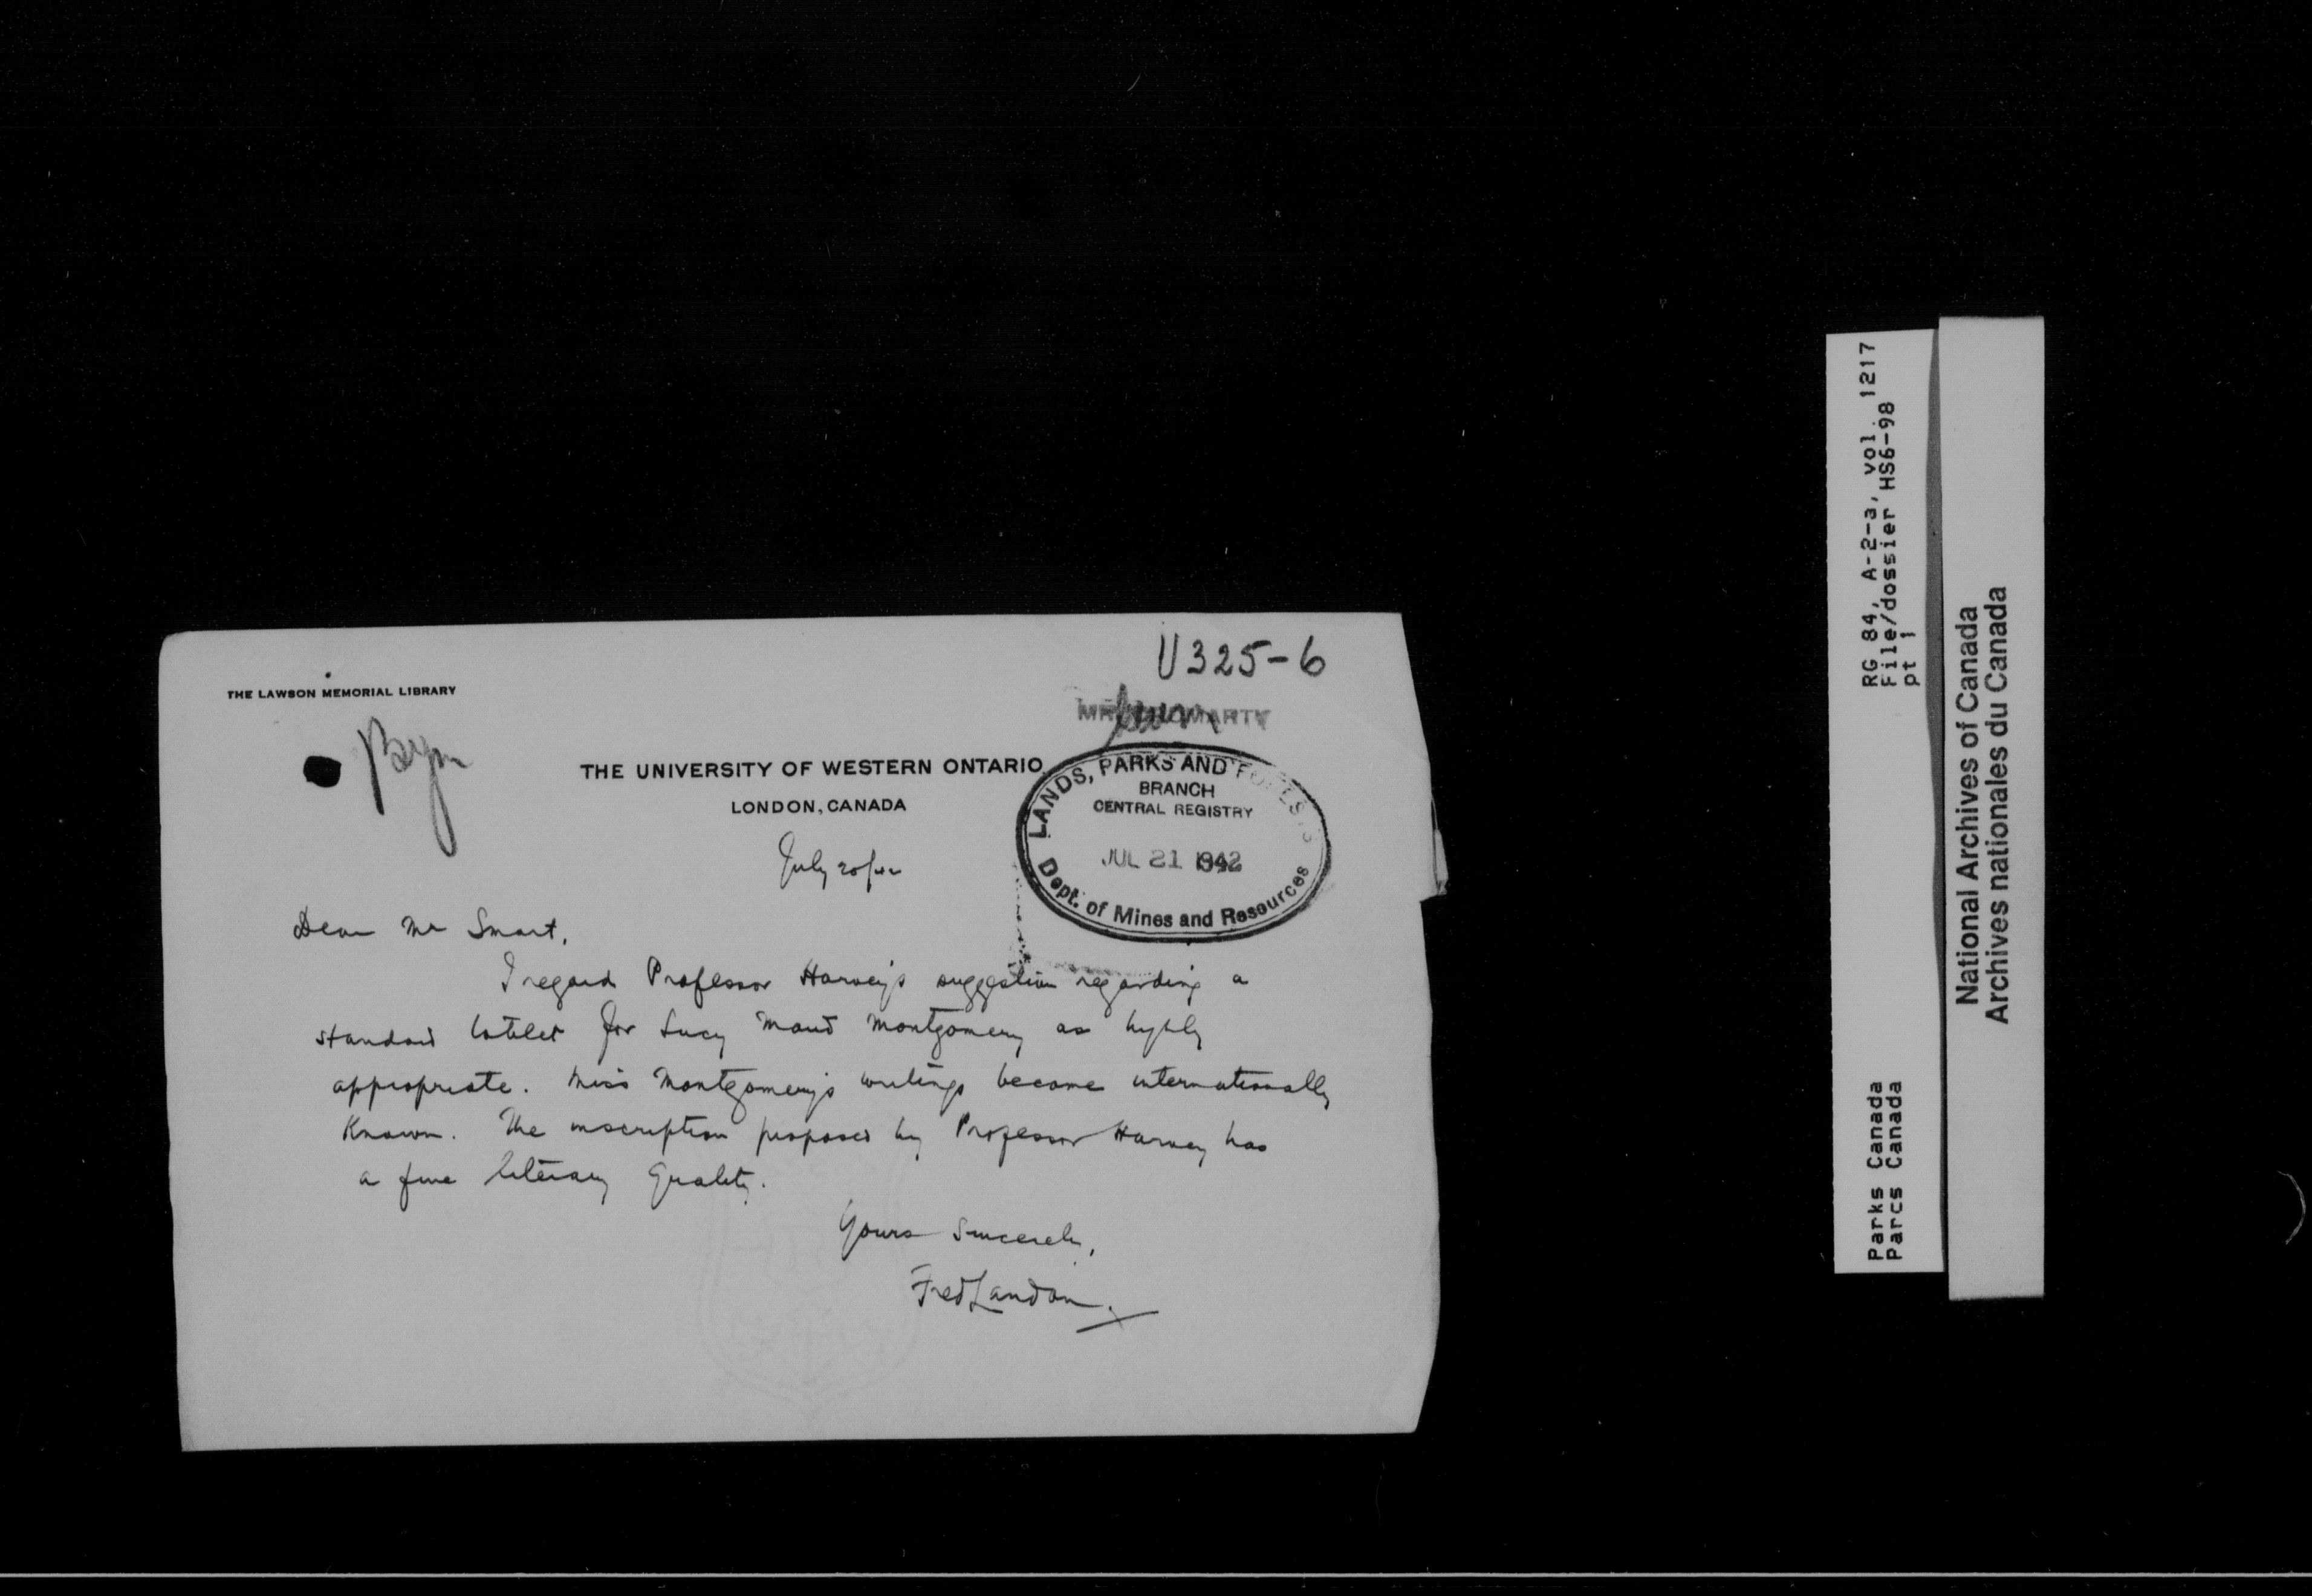 U325-6
THE LAWSON MEMORIAL LIBRARY
THE UNIVERSITY OF WESTERN ONTARIO
LONDON, CANADA
LANDS, PARKS AND FORESTS
BRANCH
CENTRAL REGISTRY
JUL 21 1942
Dept. of Mines and Resources
July 20/42
Dear Mr Smart,
I regard Professor Harvey's suggestion regarding a
standard tablet for Lucy Maud Montgomery as highly
appropriate. Miss Montgomery's writings became internationally
known. The inscription proposed by Professor Harvey has
a fine literary quality.
Yours sincerely,
Fred Landon.
RG 84, A-2-a, vol. 1217
File/dossier HS6-98
pt 1
Parks Canada
Parcs Canada
National Archives of Canada
Archives nationales du Canada